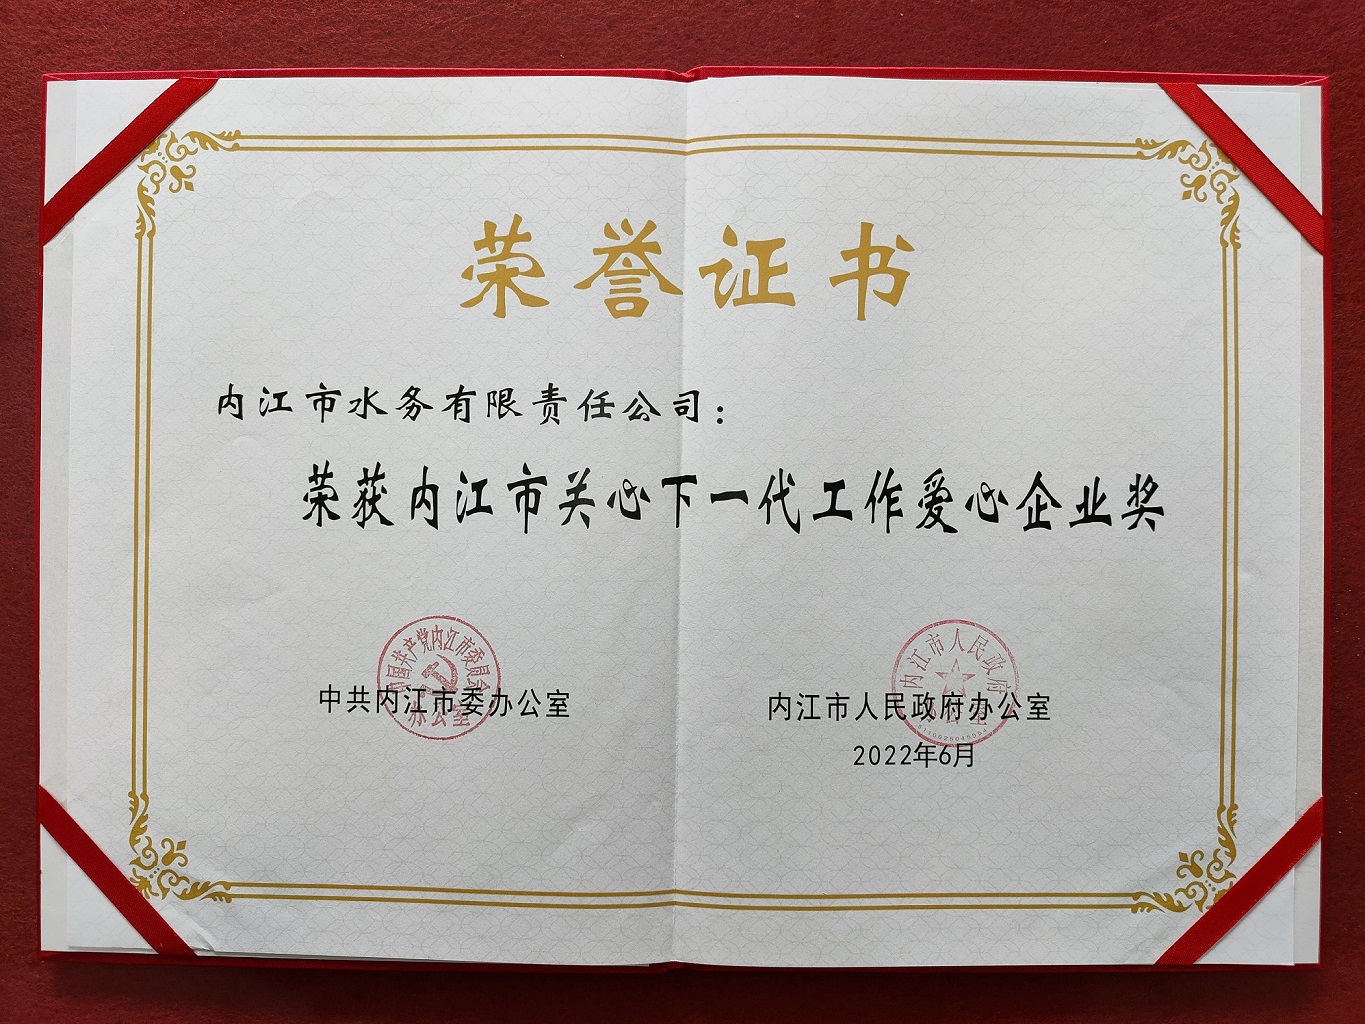 荣誉证书
内江市水务有限责任公司：
荣获内江市关心下一代工作爱心企业奖
中国共产党内江市委员会
办公室
中共内江市委办公室
内江市人民政府
办公室
内江市人民政府办公室
2022年6月